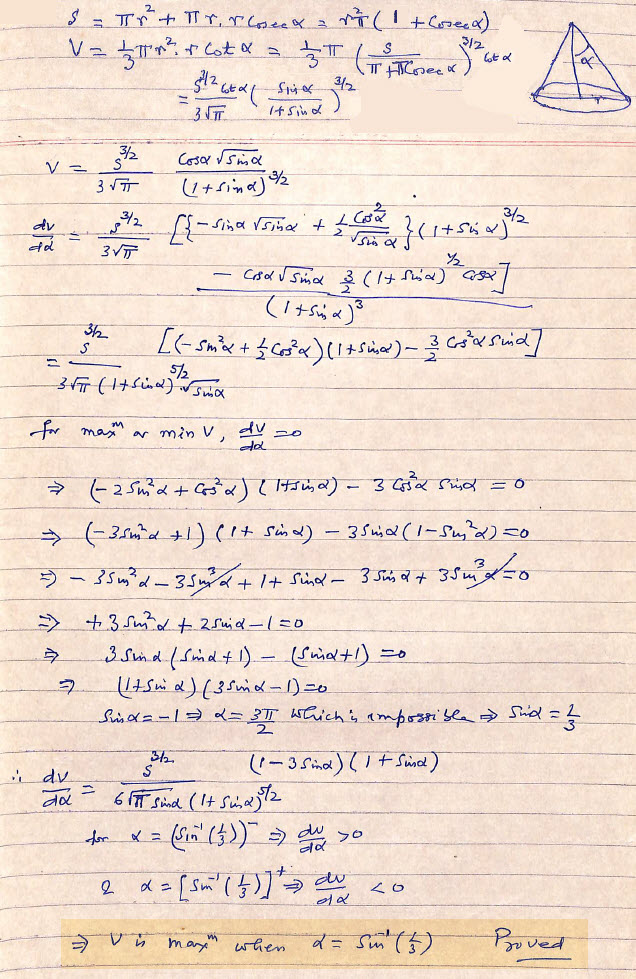 S = πr² + πr. r Cosec α = r²π ( 1 + Cosec α)
V = 1/3 πr². r Cot α = 1/3 π (S / π + π Cosec α)^3/2 Cot α
= S^3/2 Cot α / 3√π (Sin α / 1 + Sin α)^3/2
α
r
V = S^3/2 / 3√π Cos α √Sin α / (1 + Sin α)^3/2
dv/dα = S^3/2 / 3√π [{- Sin α √Sin α + 1/2 Cos²α / √Sin α} (1 + Sin α)^3/2
- Cos α √Sin α 3/2 (1 + Sin α)^1/2 Cos α] / (1 + Sin α)^3
= S^3/2 / 3√π (1 + Sin α)^5/2 . √Sin α [(- Sin²α + 1/2 Cos²α) (1 + Sin α) - 3/2 Cos²α Sin α]
for max^m or min V, dV/dα = 0
⇒ (- 2 Sin²α + Cos²α) (1 + Sin α) - 3 Cos²α Sin α = 0
⇒ (- 3 Sin²α + 1) (1 + Sin α) - 3 Sin α (1 - Sin²α) = 0
⇒ - 3 Sin²α - 3 Sin³α + 1 + Sin α - 3 Sin α + 3 Sin³α = 0
⇒ + 3 Sin²α + 2 Sin α - 1 = 0
⇒ 3 Sin α (Sin α + 1) - (Sin α + 1) = 0
⇒ (1 + Sin α) (3 Sin α - 1) = 0
Sin α = -1 ⇒ α = 3π/2 which is impossible ⇒ Sin α = 1/3
∴ dV/dα = S^3/2 / 6√π Sin α (1 + Sin α)^5/2 (1 - 3 Sin α) (1 + Sin α)
for α = (Sin⁻¹ (1/3))⁻ ⇒ dv/dα > 0
& α = [Sin⁻¹ (1/3)]⁺ ⇒ dv/dα < 0
⇒ V is max^m when α = Sin⁻¹ (1/3) Proved